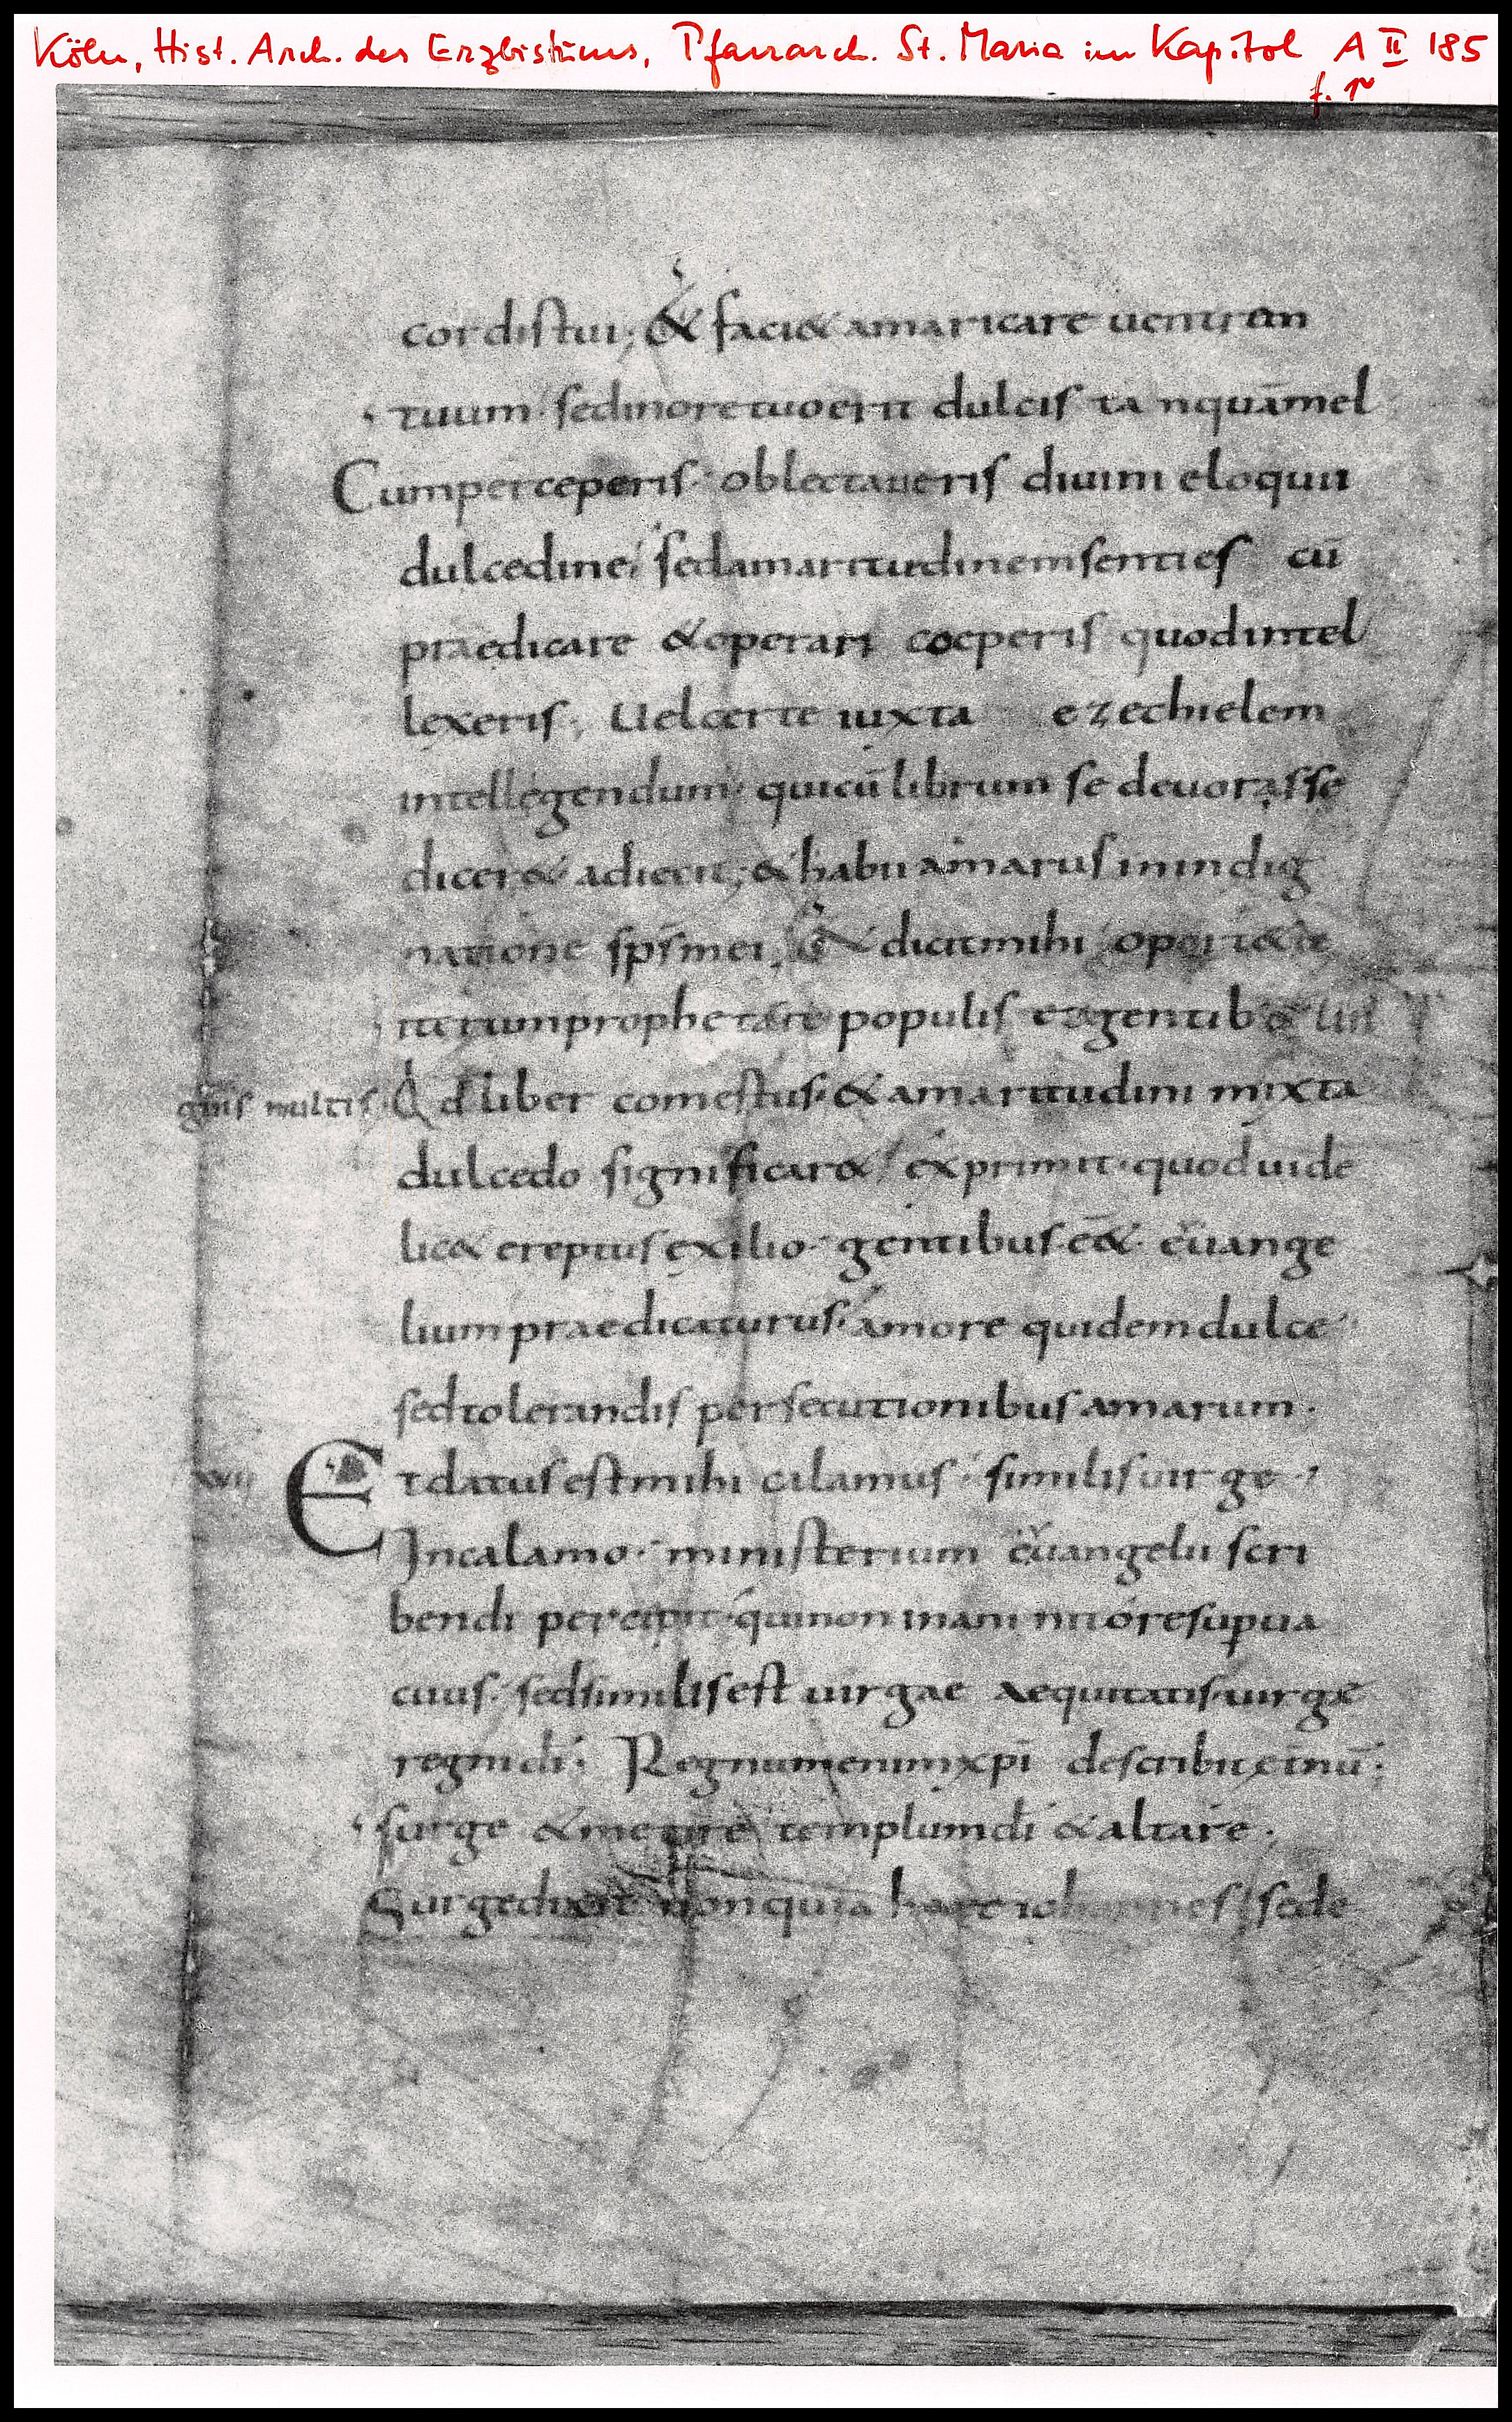 Köln, Hist. Arch. des Erzbistums, Pfarrarch. St. Maria im Kapitol A II 185
f. 1r
cordistui; & faci& amaricare uentrem
tuum sedinoretuoerit dulcis ta nquāmel
Cumperceperis oblectaueris diuini eloquii
dulcedine, sedamaritudinemsenties cū
praedicare &operari coeperis quodintel
lexeris; Uelcerte iuxta ezechielem
intellegendum quicū librum se deuorasse
dicer& adiecit; & habii amarus inindig
natione sps mei; & dicitmihi oport& te
iterumprophetare populis & gentib & lin
guis multis Qd liber comestus & amaritudini mixta
dulcedo significar& exprimit quoduide
lic& ereptus exilio gentibus ē& euange
lium praedicaturus amore quidemdulce
sedtolerandis persecutionibus amarum.
xvii Etdatusestmihi calamus similisuirge
Incalamo ministerium euangelii scri
bendi quinon inani nitoresupua
cuus sedsimilisest uirgae aequitatis uirge
regnidī; Regnumenimxpī describit
surge &metire templumdī &altare.
Surgedicit nonquia haec iohannes sede